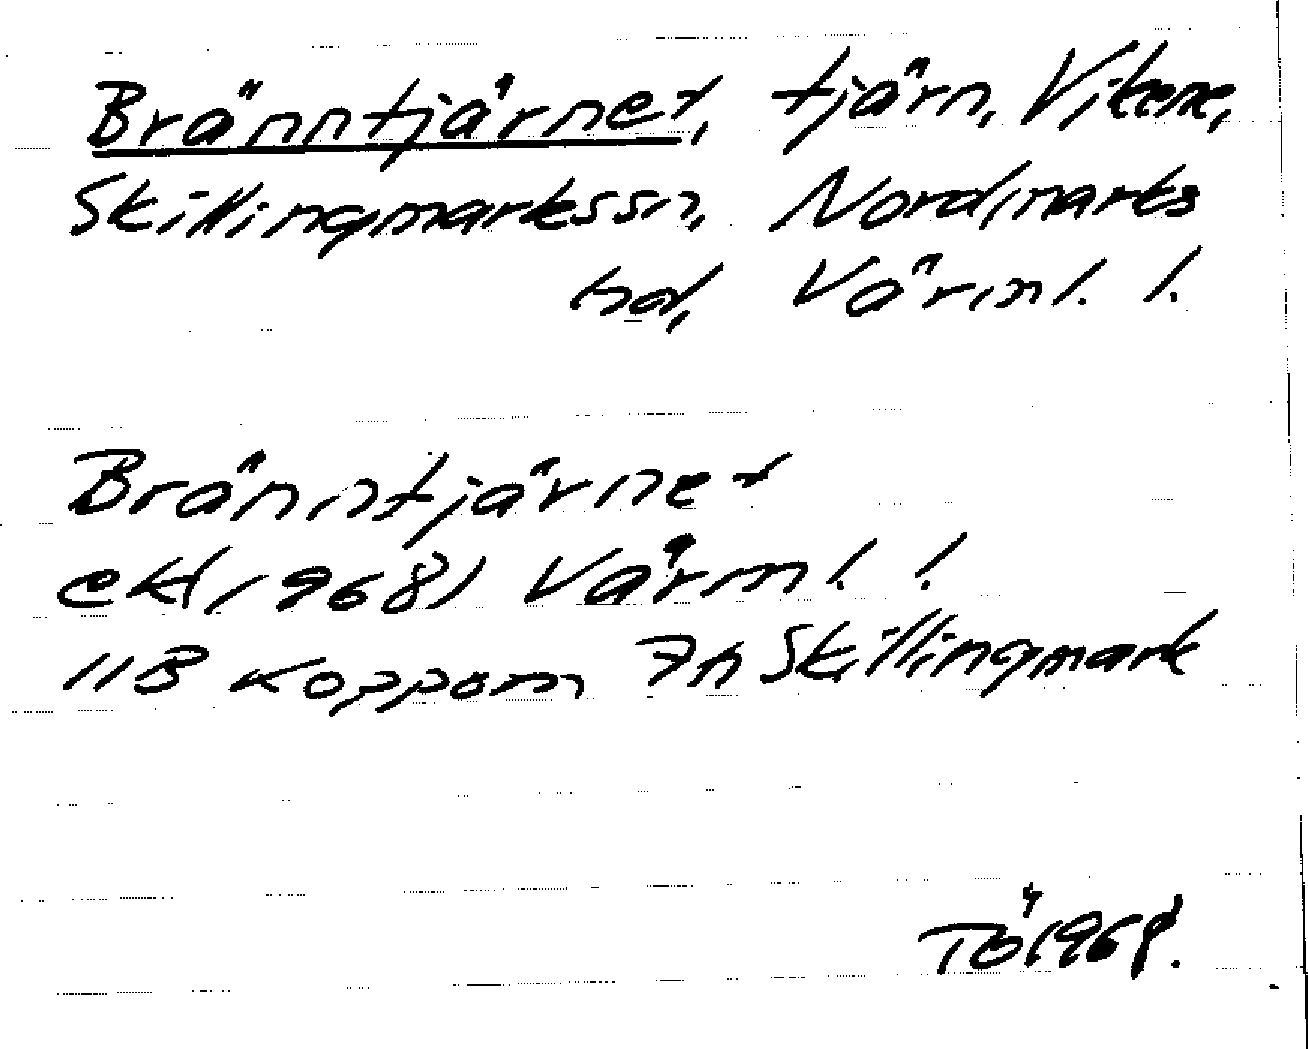 Bränntjärnet, tjärn, Vikene,
Skillingmarkssn, Nordmarks
hd, Värml. l.
Bränntjärnet
ek(1968) Värml. l.
11B Koppom 7h Skillingmark
TÖ 1968.